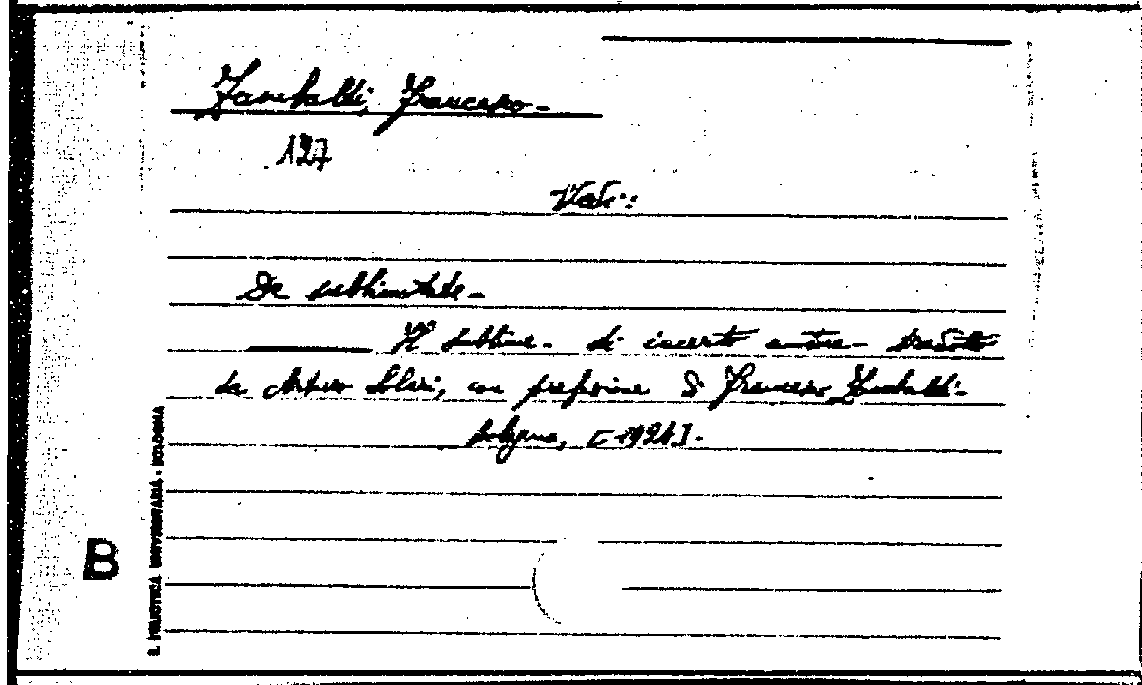 Zambaldi, Francesco -
127
Vedi:
De sublimitate -
Il sublime - di incerto autore - tradotto
da Arturo Solari, con prefazione di Francesco Zambaldi -
Bologna, [1924].
B
R. BIBLIOTECA UNIVERSITARIA - BOLOGNA